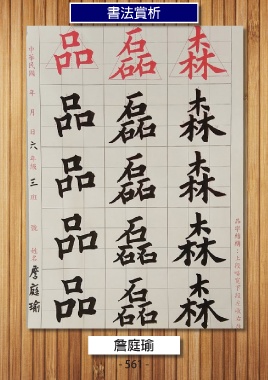 書法賞析
森 磊 品
森 磊 品
森 磊 品
森 磊 品
森 磊 品
中華民國 年 月 日 六年級 三班 號 姓名 詹庭瑜
詹庭瑜
- 561 -